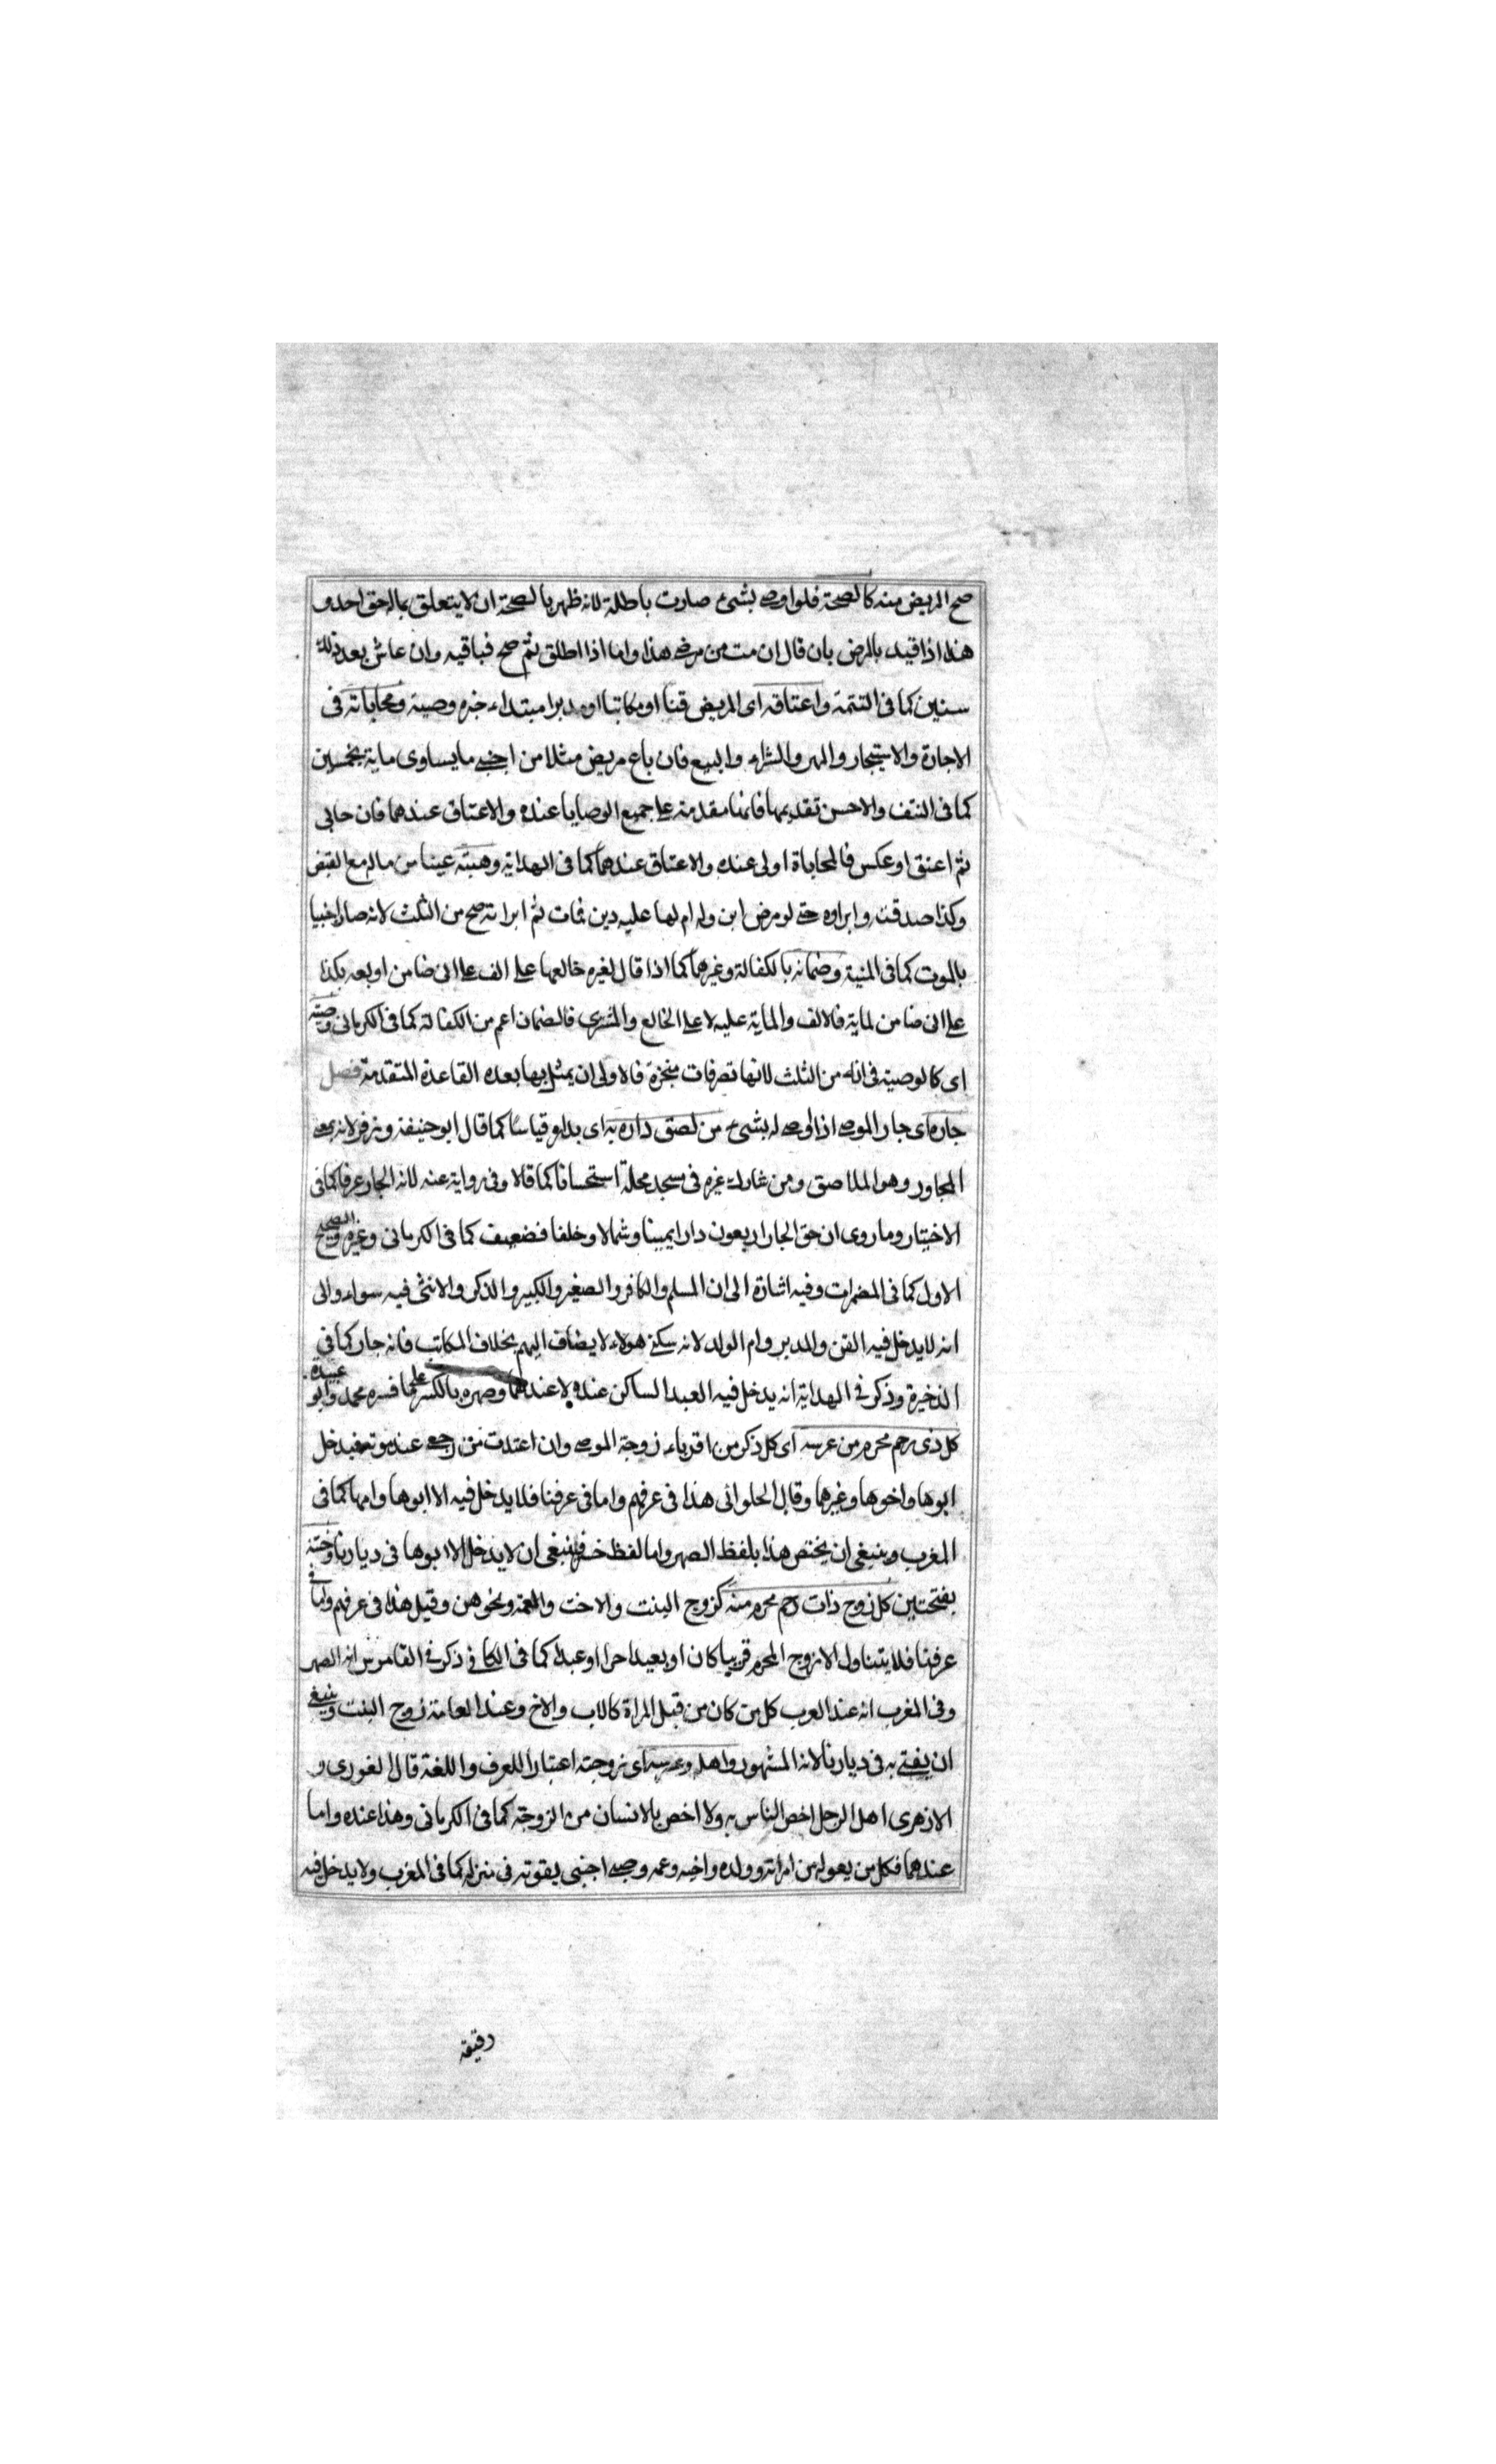 صح المريض منه كالصحة فلو اوصى بشئ صارت باطلة لانه ظهر بالصحة ان لا يتعلق بماله حق احد و
هذا اذا قيد بالمرض بان قال ان مت من مرضى هذا واما اذا اطلق ثم صح فباقيه وان عاش بعد ذلك
سنين كما فى التتمة واعتاقه اى المريض قنا او مكاتبا او مدبرا مبتداء خبره وصية ومحاباته فى
الاجارة والاستيجار والمهر والشراء والبيع فان باع مريض مثلا من اجنبى ما يساوى ماية بخمسين
كما فى النتف والاحسن تقديمها فانها مقدمة على جميع الوصايا عنده والاعتاق عندهما فان حابى
ثم اعتق او عكس فالمحاباة اولى عنده والاعتاق عندهما كما فى الهداية وهبته عينا من ماله مع القبض
وكذا صدقته وابراوه حتى لو مرض ابن وله ام لها عليه دين فمات ثم ابراته صح من الثلث لانه صار اجنبيا
بالموت كما فى المنية وضمانه بالكفالة وغيرهما كما اذا قال لغيره خالعها على الف على انى ضامن او بعه بكذا
على انى ضامن لماية فالالف والماية عليه لا على الخالع والمشترى فالضمان اعم من الكفالة كما فى الكرمانى وصية
اى كالوصية فى انه من الثلث لانها تصرفات منجزة فالاولى ان يمثل بها بعده القاعدة المتقدمة فصل
جاره اى جار الموصى اذا اوصى له بشئ من لصق داره به اى بداره قياسا كما قال ابو حنيفة وزفر لانه بمعنى
المجاور وهو الملاصق ومن شارك غيره فى مسجد محلة استحسانا كما قالا وفى رواية عنه لانه الجار عرفا كما فى
الاختيار وما روى ان حق الجار اربعون دارا يمينا وشمالا وخلفا فضعيف كما فى الكرمانى وغيره والصحيح
الاول كما فى المضمرات وفيه اشارة الى ان المسلم والكافر والصغير والكبير والذكر والانثى فيه سواء والى
انه لا يدخل فيه القن والمدبر وام الولد لانه سكنى هولاء لا يضاف اليهم بخلاف المكاتب فانه جار كما فى
الذخيرة وذكر فى الهداية انه يدخل فيه العبد الساكن عنده لا عندهما وصهره بالكسر على ما فسره محمد وابو عبيدة
كل ذى رحم محرم من عرسه اى كل ذكر من اقرباء زوجة الموصى وان اعتدت من رجعى عند موته فيدخل
ابوها واخوها وغيرهما وقال الحلوانى هذا فى عرفهم واما فى عرفنا فلا يدخل فيه الا ابوها وامها كما فى
المغرب وينبغى ان يختص هذا بلفظ الصهر واما لفظ خسر فينبغى ان لا يدخل الا ابوها فى ديارنا وختنه
بفتحتين كل زوج ذات رحم محرم منه كزوج البنت والاخت والعمة ونحوهن وقيل هذا فى عرفهم واما فى
عرفنا فلا يتناول الا زوج المحرم قريبا كان او بعيدا حرا او عبدا كما فى الكافى ذكر فى القاموس انه الصهر
وفى المغرب انه عند العرب كل من كان من قبل المراة كالاب والاخ وعند العامة زوج البنت وينبغى
ان يفتى به فى ديارنا لانه المشهور واهله وعرسه اى زوجته اعتبارا للعرف واللغة قال الغورى و
الازهرى اهل الرجل اخص الناس به ولا اخص بالانسان من الزوجة كما فى الكرمانى وهذا عنده واما
عندهما فكل من يعوله من امراته وولده واخيه وعمه وصبى اجنبى يقوته فى منزله كما فى المغرب ولا يدخل فيه
دقيقه